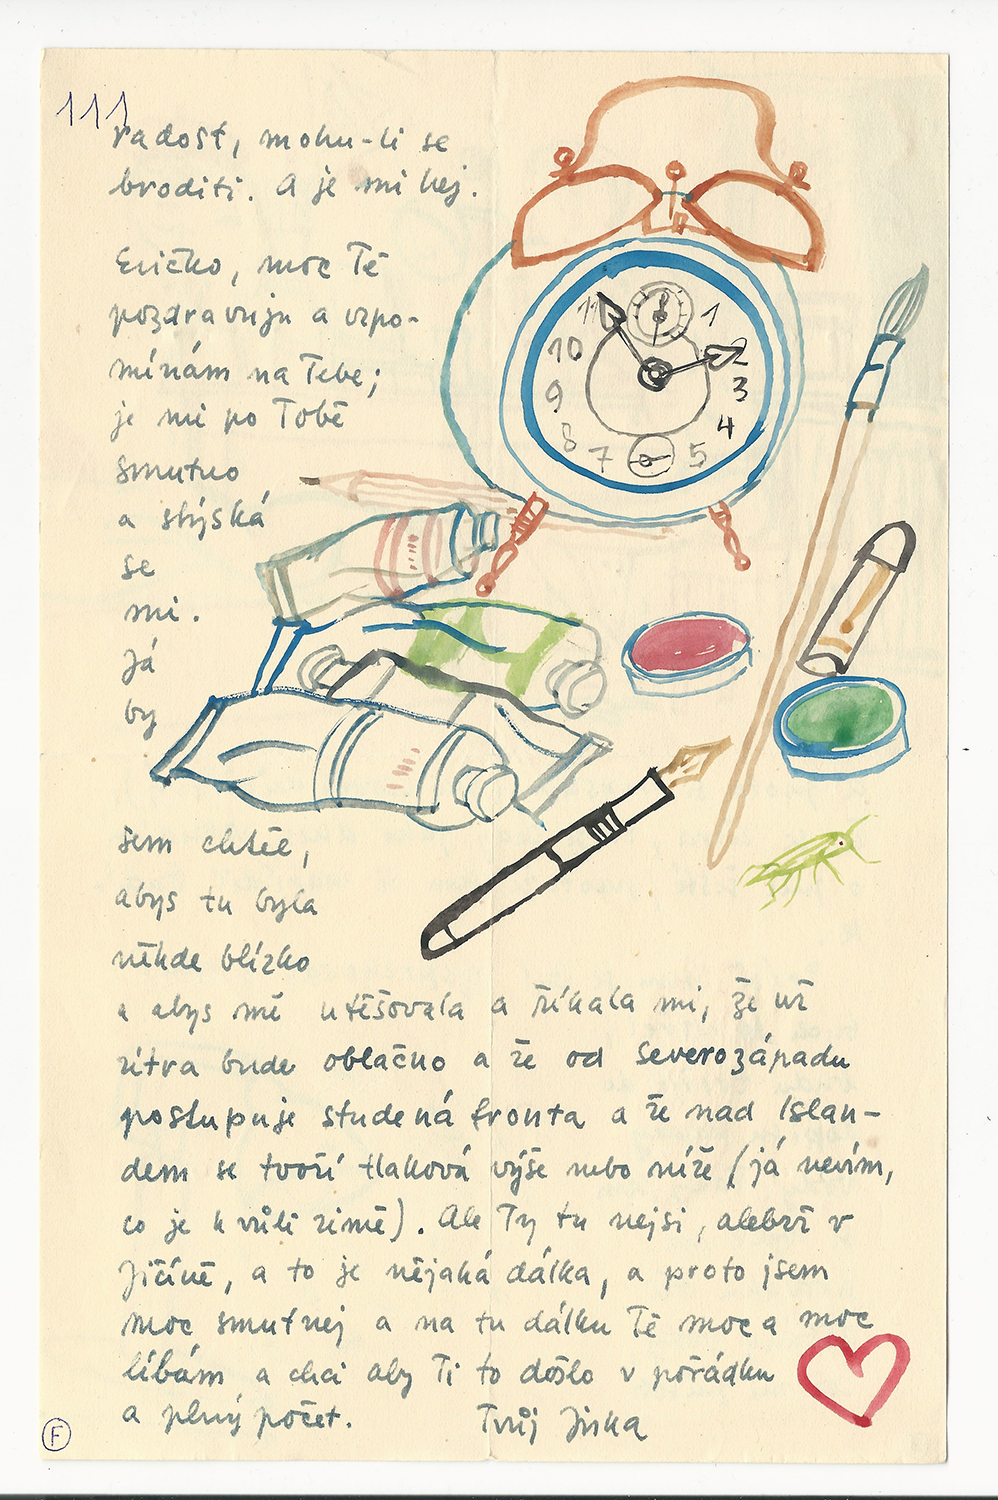 111
radost, mohu-li se
broditi. A je mi hej.
Evičko, moc Tě
pozdravuju a vzpo-
mínám na Tebe;
je mi po Tobě
smutno
a stýská
se
mi.
Já
by
sem chtěl,
abys tu byla
někde blízko
a abys mě utěšovala a říkala mi, že už
zítra bude oblačno a že od severozápadu
postupuje studená fronta a že nad Islan-
dem se tvoří tlaková výše nebo níže (já nevím,
co je k vůli zimě). Ale Ty tu nejsi, alebrž v
Jičíně, a to je nějaká dálka, a proto jsem
moc smutnej a na tu dálku Tě moc a moc
líbám a chci aby Ti to došlo v pořádku
a plný počet. Tvůj Jirka
11 1
10 2
9 3
8 4
7 5
F